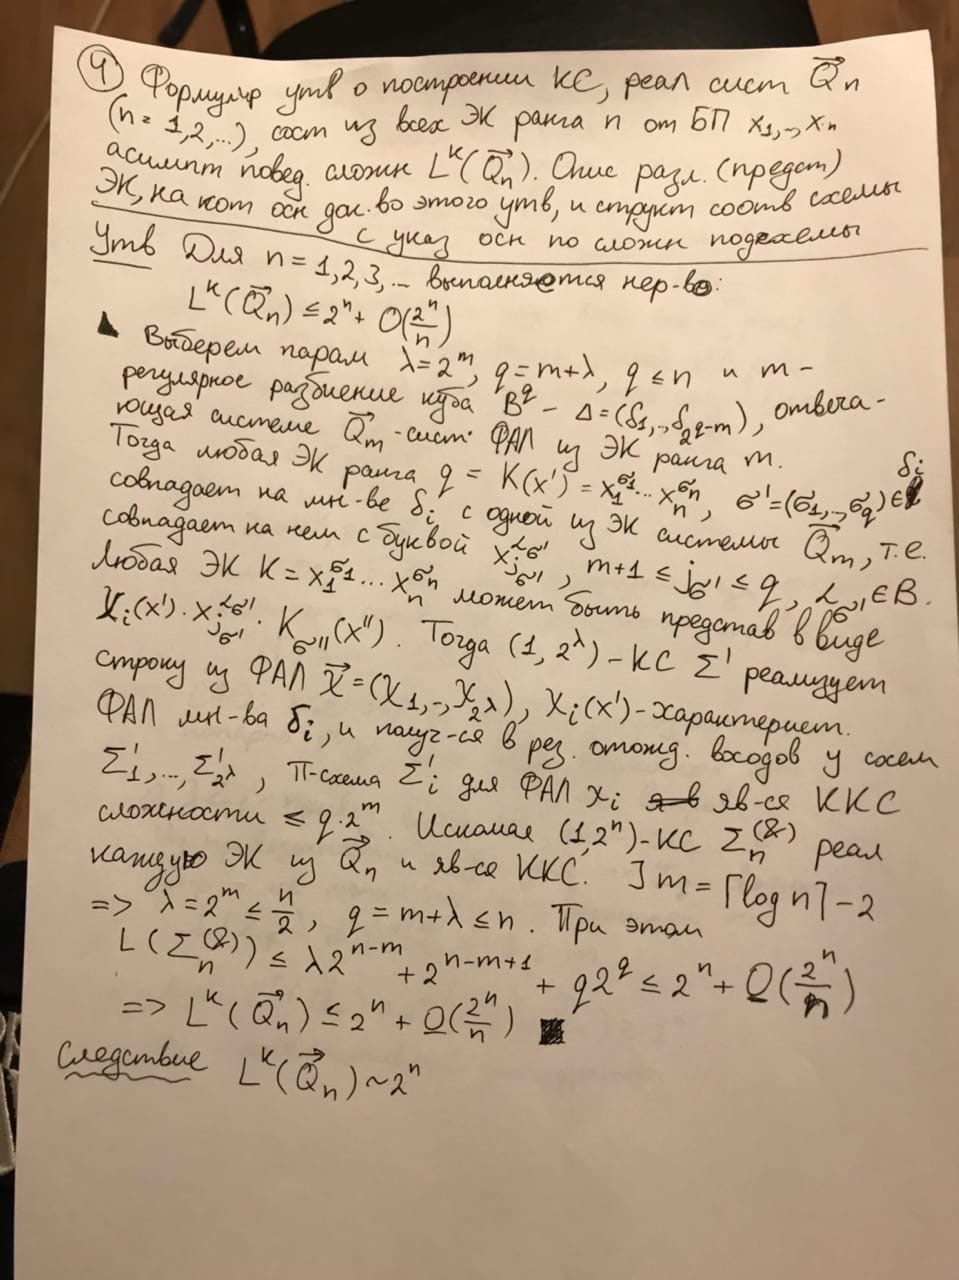 ④ Формулир утв о построении КС, реал сист Q⃗n
(n = 1,2,...), сост из всех ЭК ранга n от БП x1,..,xn
асимпт повед. сложн L^K(Q⃗n). Опис разл. (предст)
ЭК, на кот осн док-во этого утв, и структ соотв схемы
с указ осн по сложн подсхемы
Утв Для n = 1,2,3,... выполняется нер-во:
L^K(Q⃗n) ≤ 2^n + O(2^n/n)
▲ Выберем парам λ = 2^m, q = m+λ, q ≤ n и m-
регулярное разбиение куба B^q - Δ = (δ1,..,δ_{2^{q-m}}), отвеча-
ющая системе Q⃗m - сист. ФАЛ из ЭК ранга m.
Тогда любая ЭК ранга q = K(x') = x1^σ1 ... xn^σn, σ' = (σ1,..,σq) ∈ δi
совпадает на мн-ве δi с одной из ЭК системы Q⃗m, т.е.
совпадает на нем с буквой x_{jσ'}^{ασ'}, m+1 ≤ jσ' ≤ q, ασ' ∈ B.
Любая ЭК K = x1^σ1 ... xn^σn может быть представ в виде
χi(x') · x_{jσ'}^{ασ'} · Kσ''(x''). Тогда (1, 2^λ) - КС Σ' реализует
строку из ФАЛ χ⃗ = (χ1,..,χ_{2^λ}), χi(x') - характерист.
ФАЛ мн-ва δi, и получ-ся в рез. отожд. входов у схем
Σ'1,...,Σ'_{2^λ}, П-схема Σ'i для ФАЛ χi яв-ся ККС
сложности ≤ q·2^m. Искомая (1,2^n)-КС Σn^(&) реал
каждую ЭК из Q⃗n и яв-ся ККС. ] m = ⌈log n⌉ - 2
=> λ = 2^m ≤ n/2, q = m+λ ≤ n. При этом
L(Σn^(&)) ≤ λ2^{n-m} + 2^{n-m+1} + q2^q ≤ 2^n + O(2^n/n)
=> L^K(Q⃗n) ≤ 2^n + O(2^n/n) ■
Следствие L^K(Q⃗n) ~ 2^n